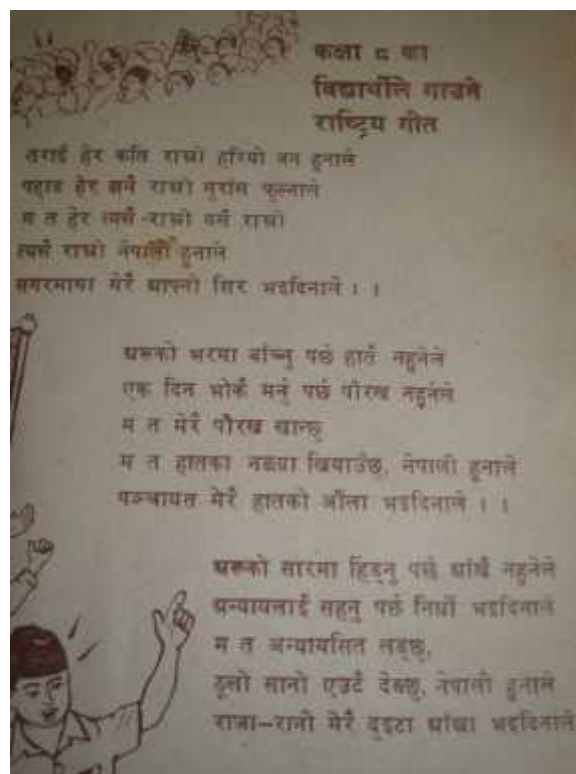 कक्षा ८ का
विद्यार्थीले गाउने
राष्ट्रिय गीत
तराई हेर कति राम्रो हरियो वन हुनाले
पहाड हेर झनै राम्रो गुराँस फुल्नाले
म त हेर त्यसै-राम्रो यसै राम्रो
त्यसै राम्रो नेपाली हुनाले
सगरमाथा मेरै आफ्नो सिर भइदिनाले । ।
अरूको भरमा बाँच्नु पर्छ हातै नहुनेले
एक दिन भोकै मर्नु पर्छ पौरख नहुनेले
म त मेरै पौरख खान्छु
म त हातका नङ्ग्रा खियाउँछु, नेपाली हुनाले
पञ्चायत मेरै हातको औंला भइदिनाले । ।
अरूको सारमा हिड्नु पर्छ आँखै नहुनेले
अन्यायलाई सहनु पर्छ निर्धो भइदिनाले
म त अन्यायसित लड्छु,
ठूलो सानो एउटै देख्छु, नेपाली हुनाले
राजा-रानी मेरै दुइटा आँखा भइदिनाले